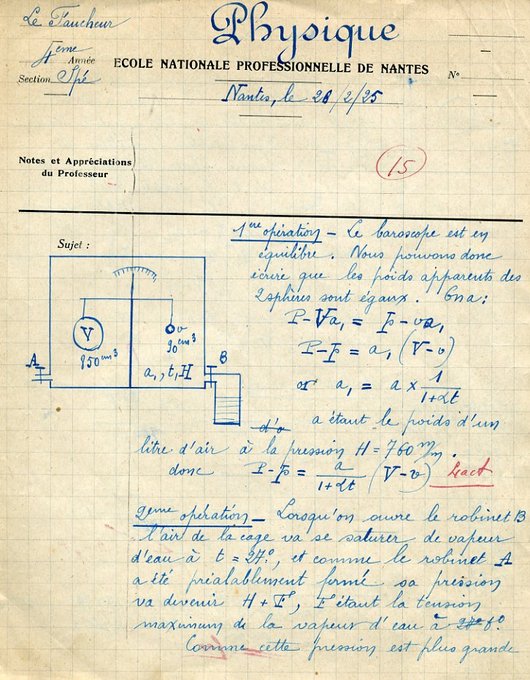 Le Faucheur
Physique
4ème Année
Section Spé
ECOLE NATIONALE PROFESSIONNELLE DE NANTES
N°
Nantes, le 28/2/25
Notes et Appréciations
du Professeur
15
Sujet :
1ère opération - Le baroscope est en
équilibre. Nous pouvons donc
écrire que les poids apparents des
2 sphères sont égaux. On a :
P - Va₁ = p - va₁
P - p = a₁ (V - v)
or a₁ = a × 1/(1+αt)
V
950 cm³
v
90 cm³
a₁, t, H
A
B
d'o
a étant le poids d'un
litre d'air à la pression H = 760 m/m.
donc P - p = a/(1+αt) (V - v)
2ème opération - Lorsqu'on ouvre le robinet B
l'air de la cage va se saturer de vapeur
d'eau à t = 27°, et comme le robinet A
a été préalablement fermé sa pression
va devenir H + F, F étant la tension
maximum de la vapeur d'eau à 27° t°
Comme cette pression est plus grande